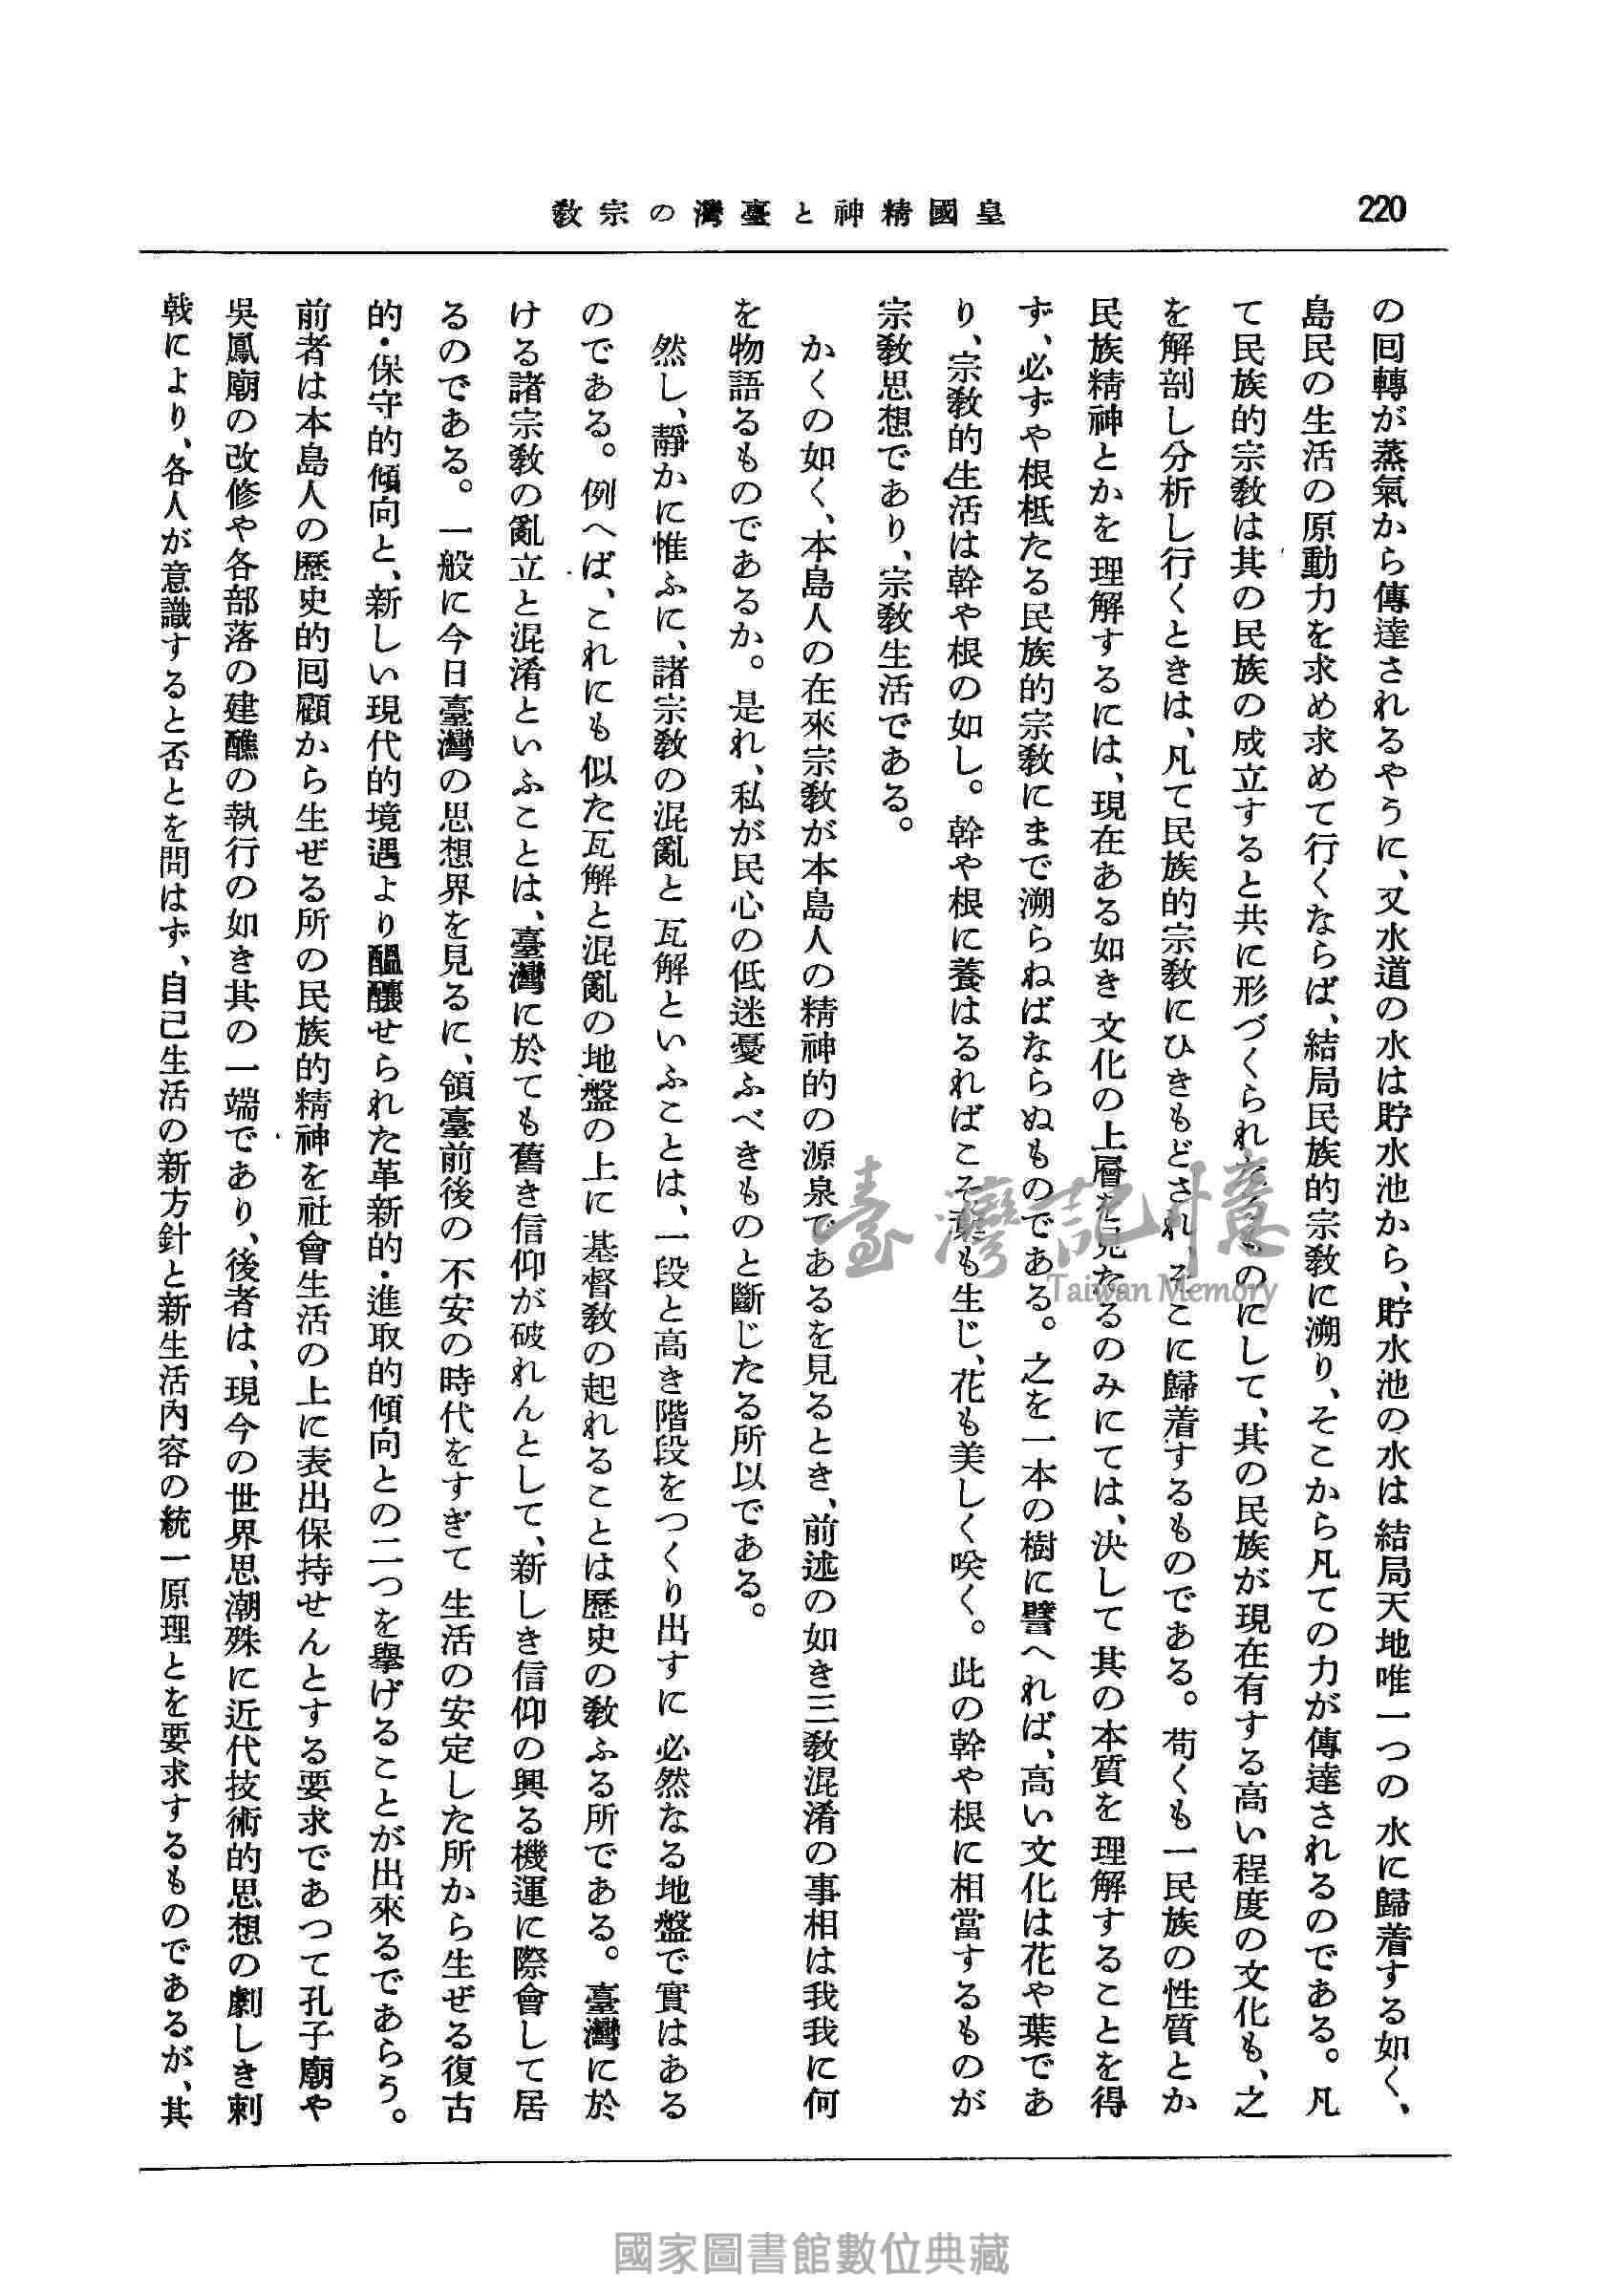 220
皇國精神と臺灣の宗敎
の回轉が蒸氣から傳達されるやうに、又水道の水は貯水池から、貯水池の水は結局天地唯一つの水に歸着する如く、
島民の生活の原動力を求め求めて行くならば、結局民族的宗敎に溯り、そこから凡ての力が傳達されるのである。凡
て民族的宗敎は其の民族の成立すると共に形づくられたるものにして、其の民族が現在有する高い程度の文化も、之
を解剖し分析し行くときは、凡て民族的宗敎にひきもどされ、そこに歸着するものである。苟くも一民族の性質とか
民族精神とかを理解するには、現在ある如き文化の上層を見たるのみにては、決して其の本質を理解することを得
ず、必ずや根柢たる民族的宗敎にまで溯らねばならぬものである。之を一本の樹に譬へれば、高い文化は花や葉であ
り、宗敎的生活は幹や根の如し。幹や根に養はるればこそ葉も生じ、花も美しく咲く。此の幹や根に相當するものが
宗敎思想であり、宗敎生活である。
かくの如く、本島人の在來宗敎が本島人の精神的の源泉であるを見るとき、前述の如き三敎混淆の事相は我我に何
を物語るものであるか。是れ、私が民心の低迷憂ふべきものと斷じたる所以である。
然し、靜かに惟ふに、諸宗敎の混亂と瓦解といふことは、一段と高き階段をつくり出すに必然なる地盤で實はある
のである。例へば、これにも似た瓦解と混亂の地盤の上に基督敎の起れることは歷史の敎ふる所である。臺灣に於
ける諸宗敎の亂立と混淆といふことは、臺灣に於ても舊き信仰が破れんとして、新しき信仰の興る機運に際會して居
るのである。一般に今日臺灣の思想界を見るに、領臺前後の不安の時代をすぎて生活の安定した所から生ぜる復古
的・保守的傾向と、新しい現代的境遇より醞釀せられた革新的・進取的傾向との二つを擧げることが出來るであらう。
前者は本島人の歷史的回顧から生ぜる所の民族的精神を社會生活の上に表出保持せんとする要求であつて孔子廟や
吳鳳廟の改修や各部落の建醮の執行の如き其の一端であり、後者は、現今の世界思潮殊に近代技術的思想の劇しき刺
戟により、各人が意識すると否とを問はず、自己生活の新方針と新生活內容の統一原理とを要求するものであるが、其
臺灣記憶
Taiwan Memory
國家圖書館數位典藏